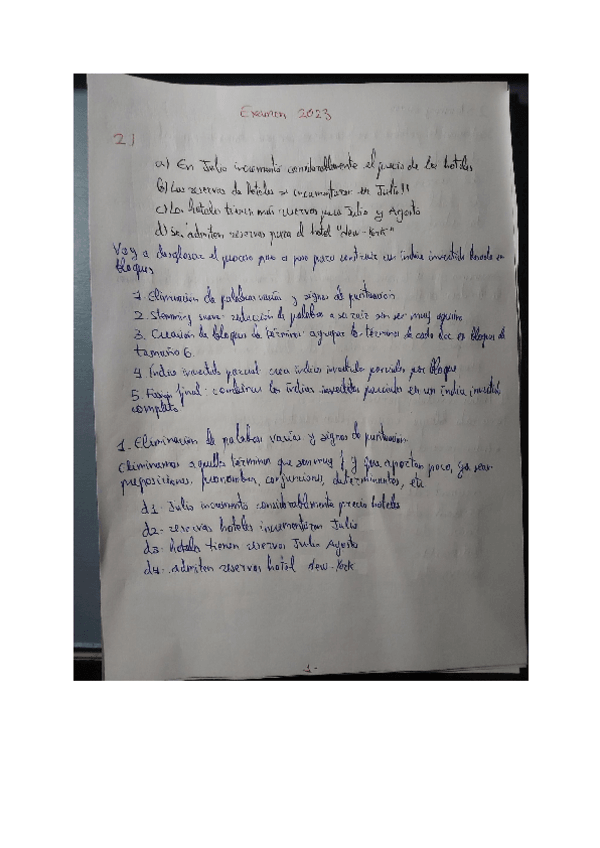 Examen 2023
2)
a) En Julio incrementó considerablemente el precio de los hoteles
b) Las reservas de hoteles se incrementaron en Julio!!
c) Los hoteles tienen más reservas para Julio y Agosto
d) Se admiten reservas para el hotel "New-York"
Voy a desglosar el proceso paso a paso para construir un índice invertido basado en
bloques
1. Eliminación de palabras vacías y signos de puntuación
2. Stemming suave: reducción de palabras a su raíz sin ser muy agresivo
3. Creación de bloques de términos: agrupar los términos de cada doc en bloques de
tamaño 6.
4. Índice invertido parcial: crea índices invertidos parciales por bloque
5. Fusión final: combinar los índices invertidos parciales en un índice invertido
completo
1. Eliminación de palabras vacías y signos de puntuación
Eliminamos aquellos términos que son muy f y que aportan poco, ya sean
preposiciones, pronombres, conjunciones, determinantes, etc
d1- Julio incremento considerablemente precio hoteles
d2- reservas hoteles incrementaron Julio
d3- hoteles tienen reservas Julio Agosto
d4- admiten reservas hotel New-York
-1-